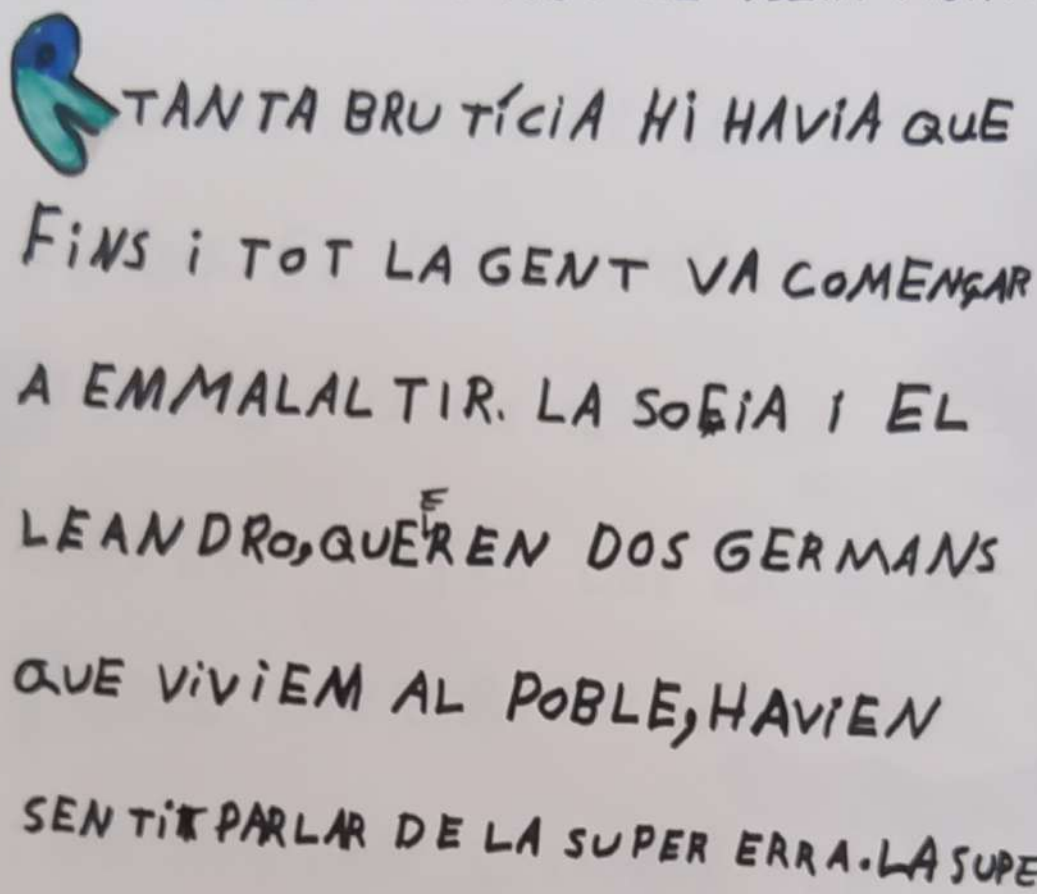 TANTA BRUTÍCIA HI HAVIA QUE
FINS I TOT LA GENT VA COMENÇAR
A EMMALALTIR. LA SOFIA I EL
LEANDRO, QUE EREN DOS GERMANS
QUE VIVIEM AL POBLE, HAVIEN
SENTIT PARLAR DE LA SUPER ERRA. LA SUPE